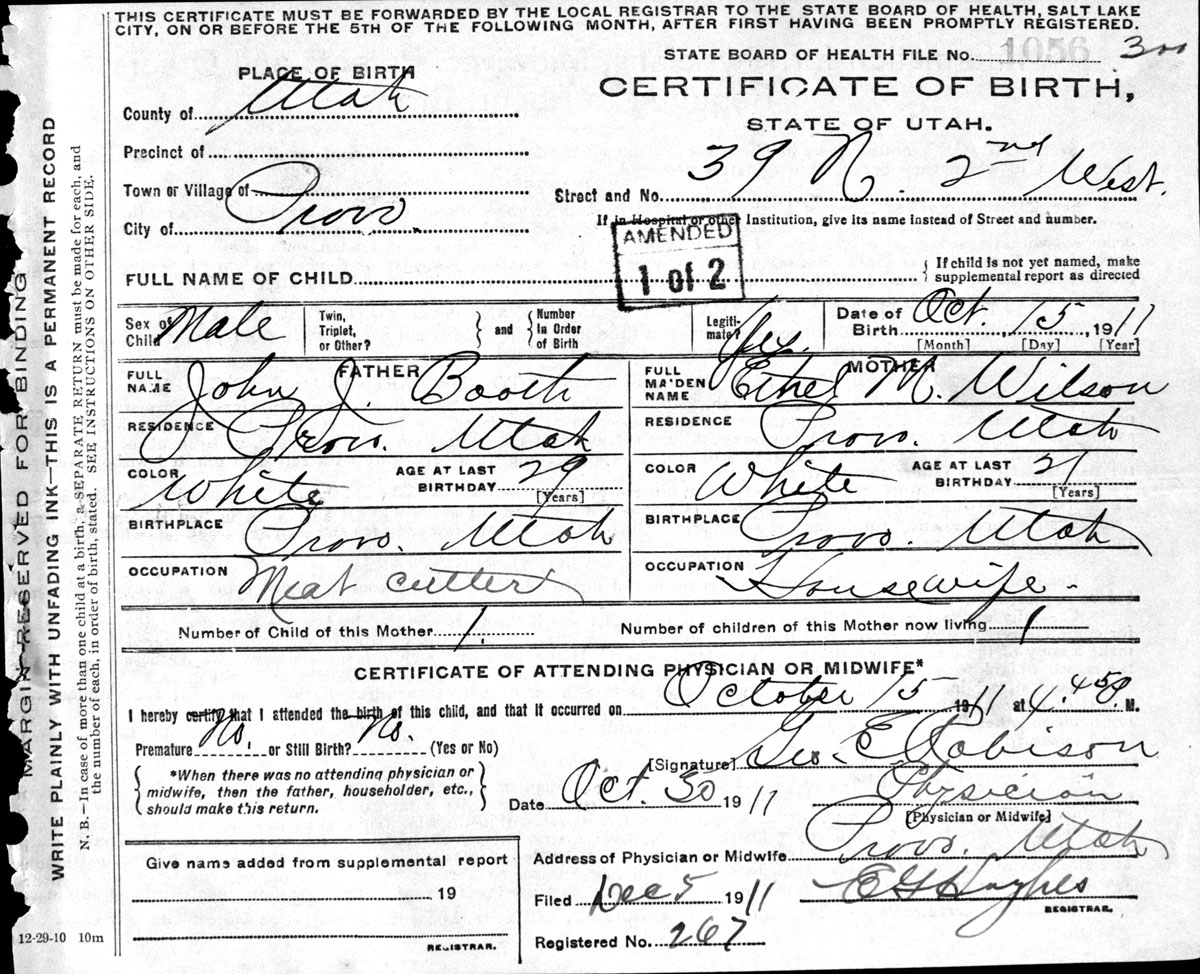 THIS CERTIFICATE MUST BE FORWARDED BY THE LOCAL REGISTRAR TO THE STATE BOARD OF HEALTH, SALT LAKE
CITY, ON OR BEFORE THE 5TH OF THE FOLLOWING MONTH, AFTER FIRST HAVING BEEN PROMPTLY REGISTERED.
STATE BOARD OF HEALTH FILE No. 1056 300
PLACE OF BIRTH
CERTIFICATE OF BIRTH,
County of Utah
STATE OF UTAH.
Precinct of
Town or Village of
Street and No. 39 N. 2nd West.
City of Provo
If in Hospital or other Institution, give its name instead of Street and number.
AMENDED
1 of 2
FULL NAME OF CHILD
If child is not yet named, make
supplemental report as directed
Sex of Child Male
Twin, Triplet, or Other? and Number In Order of Birth
Legiti-mate? Yes.
Date of Birth Oct. 15 1911
[Month] [Day] [Year]
FATHER
FULL NAME John J. Booth
RESIDENCE Provo. Utah
COLOR White AGE AT LAST BIRTHDAY 29 [Years]
BIRTHPLACE Provo. Utah
OCCUPATION Meat cutter
MOTHER
FULL MAIDEN NAME Ethel M. Wilson
RESIDENCE Provo. Utah
COLOR White AGE AT LAST BIRTHDAY 21 [Years]
BIRTHPLACE Provo. Utah
OCCUPATION Housewife
Number of Child of this Mother 1. Number of children of this Mother now living 1
CERTIFICATE OF ATTENDING PHYSICIAN OR MIDWIFE*
I hereby certify that I attended the birth of this child, and that it occurred on October 15 1911 at 4.45 P. M.
Premature No. or Still Birth? No. (Yes or No)
[Signature] Geo. E Robison
*When there was no attending physician or
midwife, then the father, householder, etc.,
should make this return.
Date Oct. 30 1911
Physician
[Physician or Midwife]
Give name added from supplemental report
19
REGISTRAR.
Address of Physician or Midwife Provo. Utah
Filed Dec 5 1911 E G Hughes
REGISTRAR.
Registered No. 267
12-29-10 10m
MARGIN RESERVED FOR BINDING
WRITE PLAINLY WITH UNFADING INK—THIS IS A PERMANENT RECORD
N. B.—In case of more than one child at a birth, a SEPARATE RETURN must be made for each, and
the number of each, in order of birth, stated. SEE INSTRUCTIONS ON OTHER SIDE.